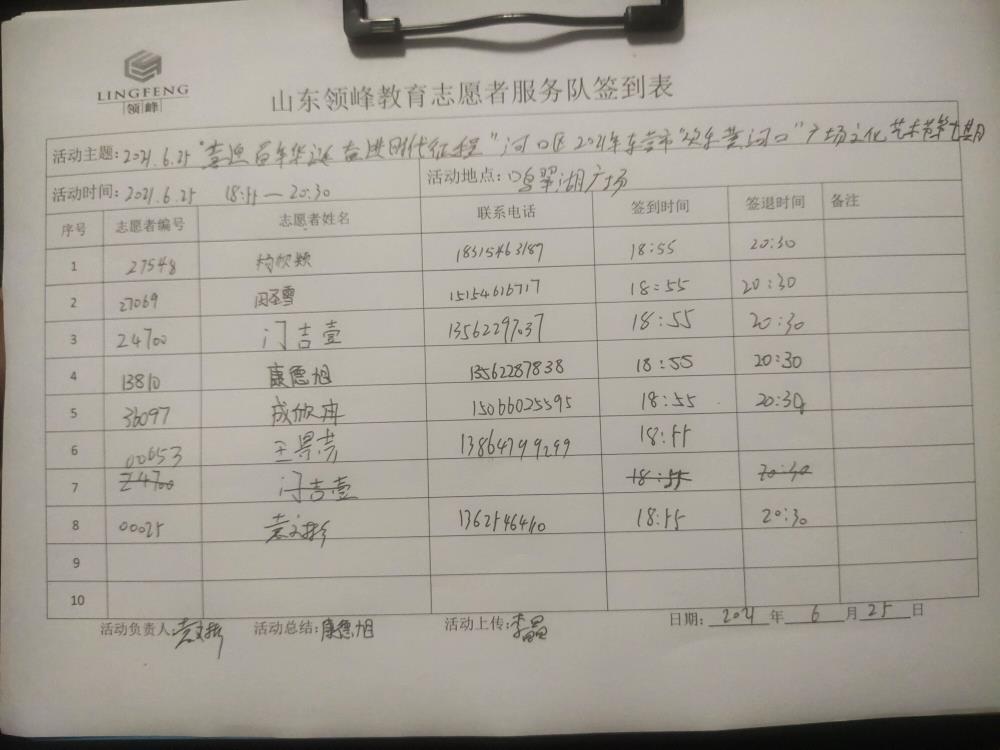 LINGFENG
领峰
山东领峰教育志愿者服务队签到表
活动主题: 2021.6.25 "喜迎百年华诞 奋进时代征程" 河口区2021年东营市"欢乐黄河口"广场文化艺术节第七期
活动时间: 2021.6.25 18:55—20:30 活动地点: 鸣翠湖广场
序号 志愿者编号 志愿者姓名 联系电话 签到时间 签退时间 备注
1 27548 18315463187 18:55 20:30
2 27069 15154616717 18:55 20:30
3 24700 门吉壹 13562297037 18:55 20:30
4 13810 康德旭 13562287838 18:55 20:30
5 36097 成欣冉 15066025595 18:55 20:30
6 00653 13864799299 18:55
7 24700 门吉壹 18:55 20:30
8 00025 袁文彬 18:55 20:30
9
10
活动负责人: 袁文彬 活动总结: 康德旭 活动上传: 李晶 日期: 2021 年 6 月 25 日